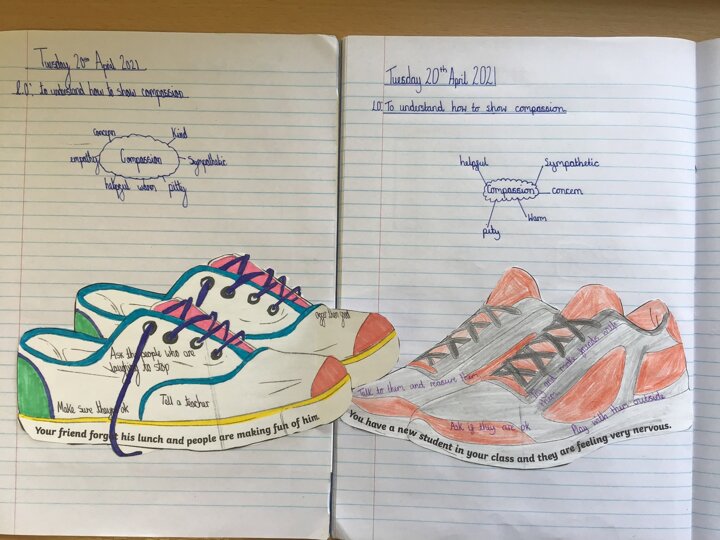 Tuesday 20th April 2021
L.O: to understand how to show compassion
concern
Kind
empathy
Compassion
Sympathetic
helpful
warm
pitty
offer them food
Ask the people who are
laughing to stop
Make sure they ok
Tell a teacher
Your friend forgot his lunch and people are making fun of him.
Tuesday 20th April 2021
LO: To understand how to show compassion
helpful
Sympathetic
Compassion
concern
Warm
pity
Talk to them and reasure them
make friends with
them
Ask if they are ok
Play with them outside
You have a new student in your class and they are feeling very nervous.